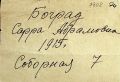 1902
Боград
Сарра Абрамовна
1915г.
Соборная 7